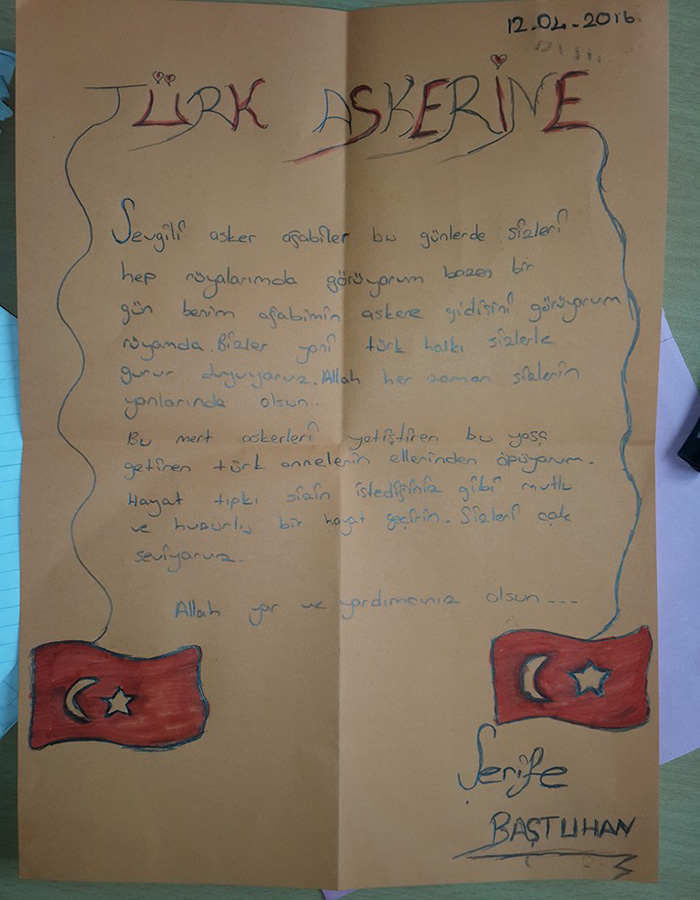 12.04.2016
TÜRK ASKERİNE
Sevgili asker ağabiler bu günlerde sizleri
hep rüyalarımda görüyorum bazen bir
gün benim ağabimin askere gidişini görüyorum
rüyamda. Bizler yani türk halkı sizlerle
gurur duyuyoruz. Allah her zaman sizlerin
yanlarında olsun.
Bu mert askerleri yetiştiren bu yaşa
getiren türk annelerin ellerinden öpüyorum.
Hayat tıpkı sizin istediğiniz gibi mutlu
ve huzurlu bir hayat geçirin. Sizleri çok
seviyoruz.
Allah yar ve yardımcınız olsun ---
Şerife
BAŞTUHAN